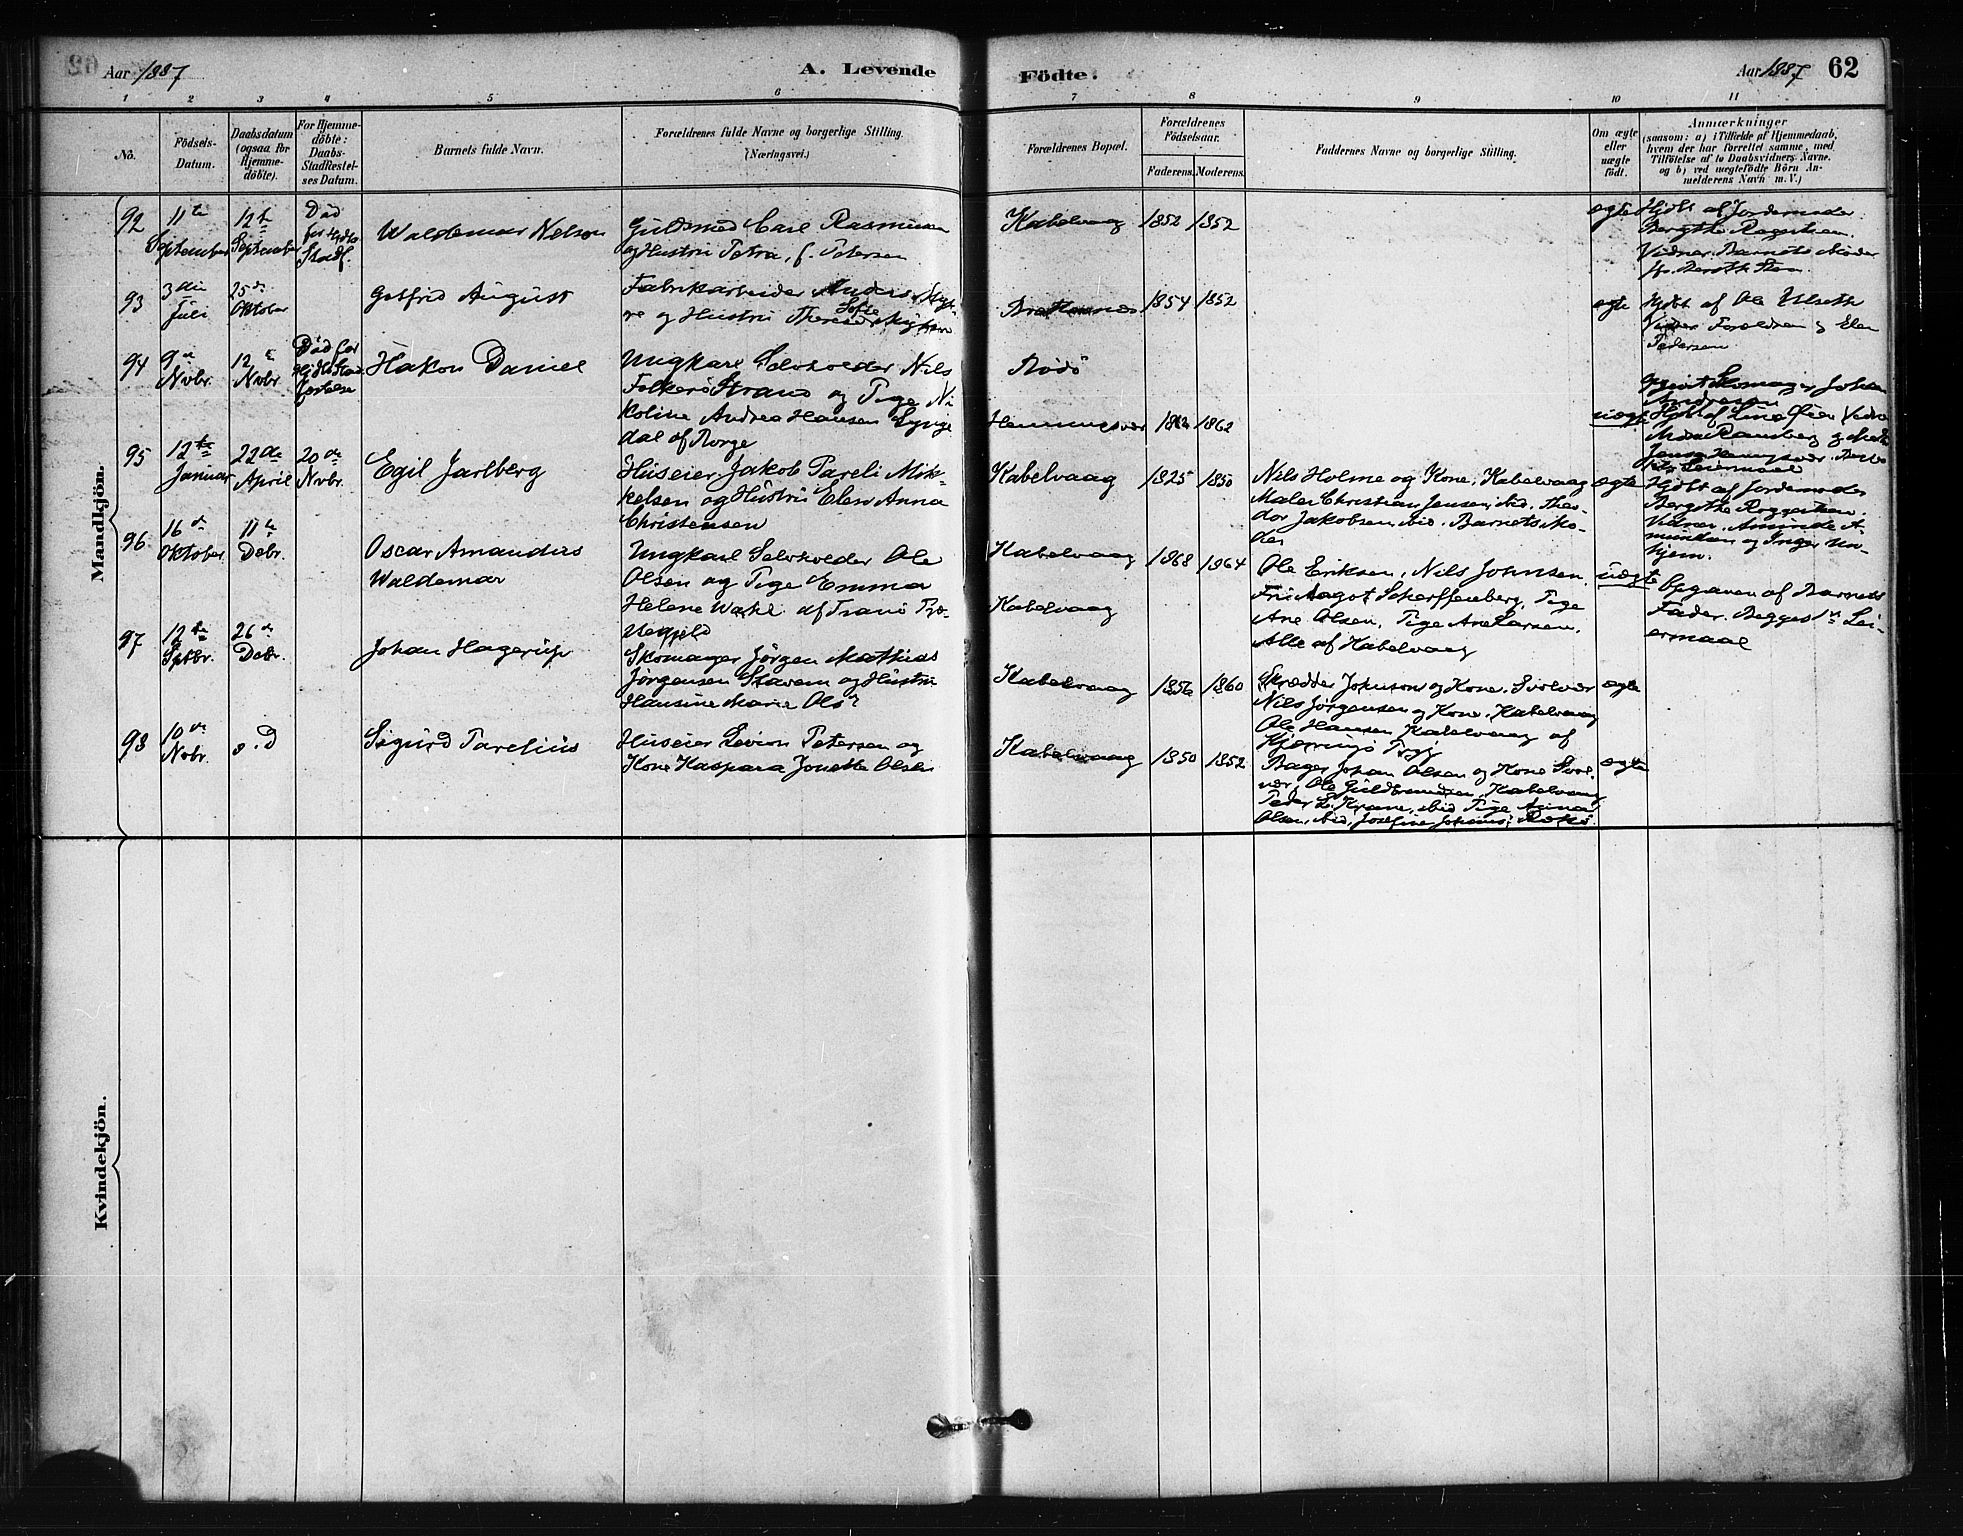 Aar 1887
A. Levende
Födte.
Aar 1887 62
1 2 3 4 5 6 7 8 9 10 11
No.
Födsels-
Datum.
Daabsdatum
(ogsaa for
Hjemme-
döbte).
For Hjemme-
döbte:
Daabs-
Stadfæstel-
ses Datum.
Barnets fulde Navn.
Forældrenes fulde Navne og borgerlige Stilling.
(Næringsvei.)
Forældrenes Bopæl.
Forældrenes
Födselsaar.
Faderens. Moderens.
Faddernes Navne og borgerlige Stilling.
Om ægte
eller
uægte
födt.
Anmærkninger
(saasom: a) i Tilfælde af Hjemmedaab,
hvem der har forrettet samme, med
Tilföielse af to Daabsvidners Navne.
og b) ved uægtefödte Börn An-
melderens Navn m. V.)
Mandkjön.
92
11te
September
12te
September
Död
för Hjdbs
Stadf.
Waldemar Nelson
Guldsmed Carl Rasmusen
og Hustru Petra, f. Petersen
Kabelvaag 1852 1852
ægte
Hjdbt af Jordemoder
Vidner Barnets Moder
93
3die
Juli
25de
Oktober
Gotfrid August
Fabrikarbeider Anders
og Hustru
Sofie
1854 1852
ægte
Hjdbt af Ole
Vidner Forældren og Elen
Pedersen
94
9de
Novbr.
12te
Novbr.
Död för
Hakon Daniel
Ungkarl Selvholder Nils
Strand og Pige Ni-
koline Andrea Hansen Lyng-
dal af Borge
Henningsvær 1862
uægte
Johan
Andresen
95
12te
Januar
22de
April
20de
Nvbr.
Egil Jarlberg
Huseier Jakob Pareli Mik-
kelsen og Hustru Elen Anna
Christensen
Kabelvaag 1825 1850
Nils Holme og Kone, Kabelvaag
Maler Christian Jensen, ibid. Theo-
dor Jakobsen ibid. Barnets Mo-
der
ægte
Hjdbt af Jordemoder
96
16de
Oktober
11te
Debr.
Oscar Amandus
Waldemar
Ungkarl Selvholder Ole
Olsen og Pige Emma
Helene Wahl af Tranö
Kabelvaag 1868 1864
Kabelvaag
Ole Eriksen, Nils Johnsen,
Frü Aagot Scharffenberg, Pige
Ane Olsen, Pige Ane Larsen,
Alle af Kabelvaag
uægte
Opgaven af Barnets
Fader. Begges 1ste Lei-
ermaal
97
12te
Sptbr.
26de
Debr.
Johan Hagerup
Skomager Jörgen Mathias
Jörgensen Stavem og Hustru
Hansine Marie Olsr
Kabelvaag 1856 1860
Skrædder Johnson og Kone. Svolvær
Nils Jörgensen og Kone, Kabelvaag
Ole Hansen Kabelvaag af
ægte
98
10de
Nvbr.
s. D
Sigurd Parelius
Huseier Petersen og
Kone Kaspara Jonette Olsen
Kabelvaag 1850 1852
Bager Johan Olsen og Kone Svol-
vær, Ole Guldbrandsen, Kabelvaag
Peder L. Krane, ibid Pige
Olsen, ibid, Josefine
ægte
Kvindekjön.